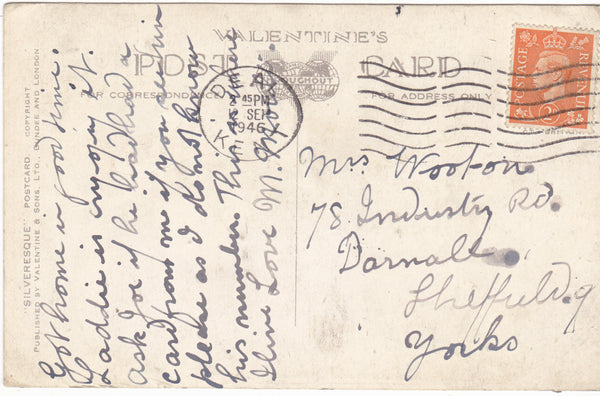 VALENTINE'S
POST CARD
FOR CORRESPONDENCE
FOR ADDRESS ONLY
"SILVERESQUE" POSTCARD. COPYRIGHT
PUBLISHED BY VALENTINE & SONS, LTD., DUNDEE AND LONDON
Got home in good time.
Laddie is enjoying it.
ask Joe if he had had a
card from me if you see him
please as I do not know
his number. This is where
I live Love M.
DEAL
45 PM
SEP
1946
KENT
POSTAGE
REVENUE
Mrs Wooton
78 Industry Rd.
Darnall
Sheffield. 9
Yorks